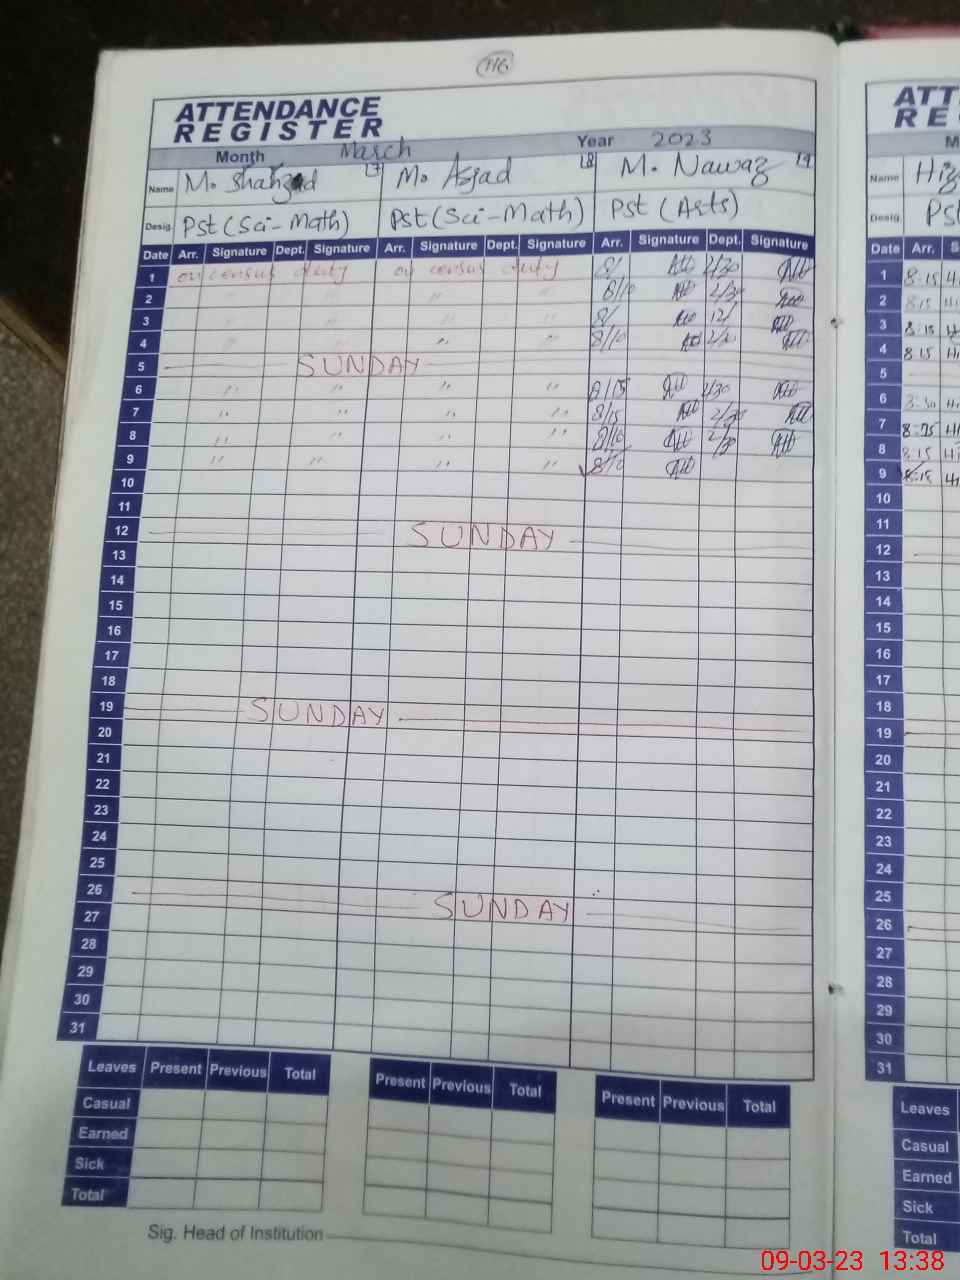 116
ATTENDANCE
REGISTER
Month March Year 2023
Name M. Shahzad 17 M. Asjad 18 M. Nawaz
Desig. Pst (Sci-Math) Pst (Sci-Math) Pst (Arts)
Date Arr. Signature Dept. Signature Arr. Signature Dept. Signature Arr. Signature Dept. Signature
1 on census duty on census duty 8/ 2/30
2 " " " " 8/10 2/30
3 " " " " 8/ 12/
4 " " " " 8/10 2/30
5 SUNDAY
6 " " " " 8/15 2/30
7 " " " " 8/15 2/30
8 " " " " 8/10 2/30
9 " " " " 8/10
10
11
12 SUNDAY
13
14
15
16
17
18
19 SUNDAY
20
21
22
23
24
25
26 SUNDAY
27
28
29
30
31
Leaves Present Previous Total Present Previous Total Present Previous Total
Casual
Earned
Sick
Total
Sig. Head of Institution
ATT
RE
M
Name
Desig. Pst
Date Arr. S
1 8:15
2 8:15
3 8:15
4 8:15
5
6 8:30
7
8 8:15
9 8:15
10
11
12
13
14
15
16
17
18
19
20
21
22
23
24
25
26
27
28
29
30
31
Leaves
Casual
Earned
Sick
Total
09-03-23 13:38